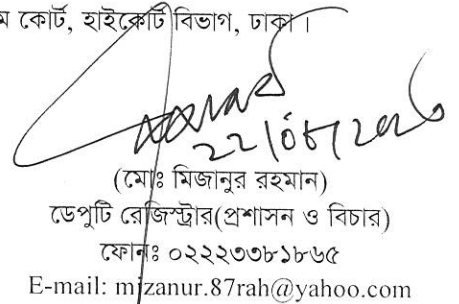 ম কোর্ট, হাইকোর্ট বিভাগ, ঢাকা।
(মোঃ মিজানুর রহমান)
ডেপুটি রেজিস্ট্রার(প্রশাসন ও বিচার)
ফোনঃ ০২২২৩৩৮১৮৬৫
E-mail: mizanur.87rah@yahoo.com